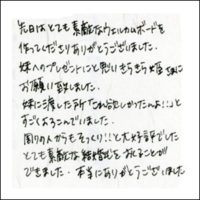 先日はとても素敵なウェルカムボードを
作ってくださりありがとうございました。
妹へのプレゼントにと思いきらきら姫 様に
お願い致しました。
妹に渡した所「これ欲しかったんよ！！」と
すごくよろこんでいました。
周りの人からもそっくり！！と大好評でした
とても素敵な結婚式を
できました。本当にありがとうございました